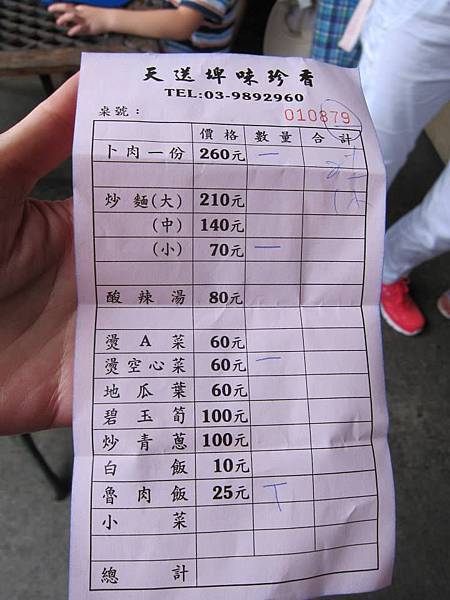 天送埤味珍香
TEL:03-9892960
桌號： 010879
價格 數量 合計
卜肉一份 260元 一
炒麵(大) 210元
(中) 140元
(小) 70元 一
酸辣湯 80元
燙A菜 60元
燙空心菜 60元 一
地瓜葉 60元
碧玉筍 100元
炒青蔥 100元
白飯 10元
魯肉飯 25元 T
小菜
總計